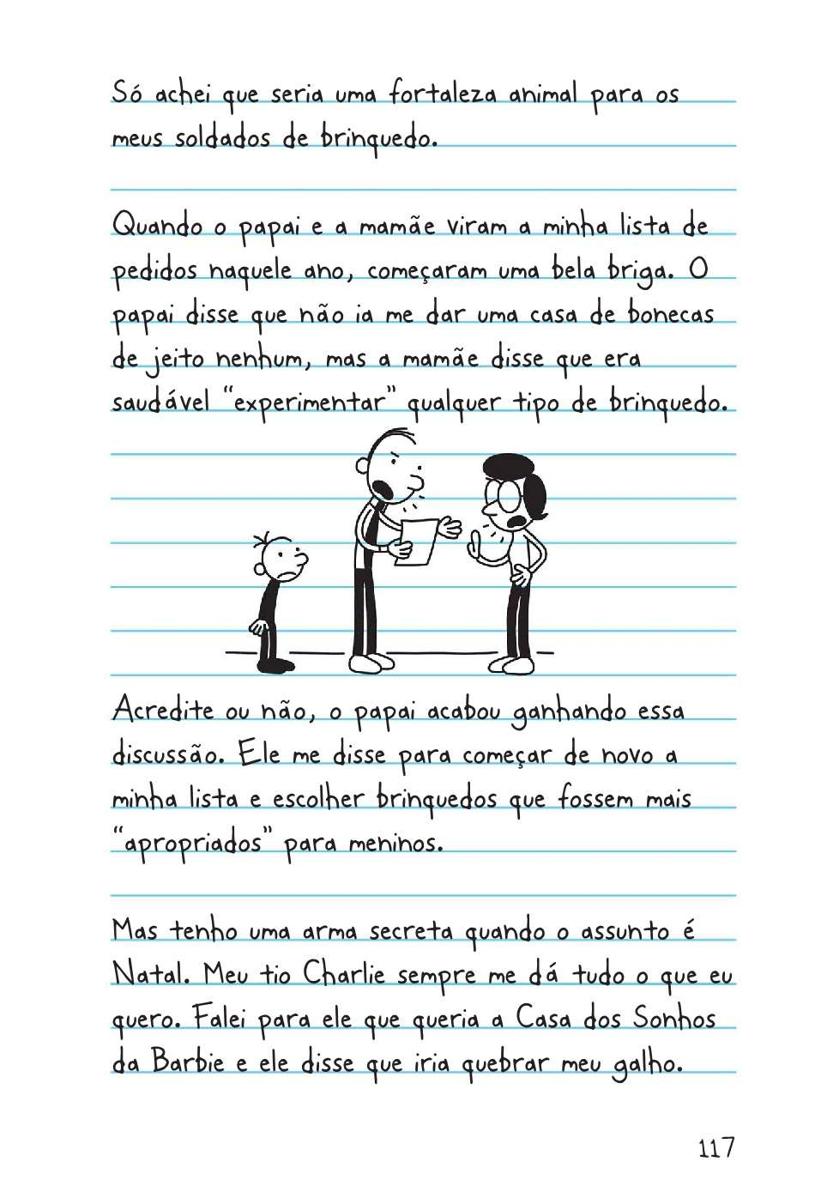 Só achei que seria uma fortaleza animal para os
meus soldados de brinquedo.
Quando o papai e a mamãe viram a minha lista de
pedidos naquele ano, começaram uma bela briga. O
papai disse que não ia me dar uma casa de bonecas
de jeito nenhum, mas a mamãe disse que era
saudável “experimentar” qualquer tipo de brinquedo.
Acredite ou não, o papai acabou ganhando essa
discussão. Ele me disse para começar de novo a
minha lista e escolher brinquedos que fossem mais
“apropriados” para meninos.
Mas tenho uma arma secreta quando o assunto é
Natal. Meu tio Charlie sempre me dá tudo o que eu
quero. Falei para ele que queria a Casa dos Sonhos
da Barbie e ele disse que iria quebrar meu galho.
117